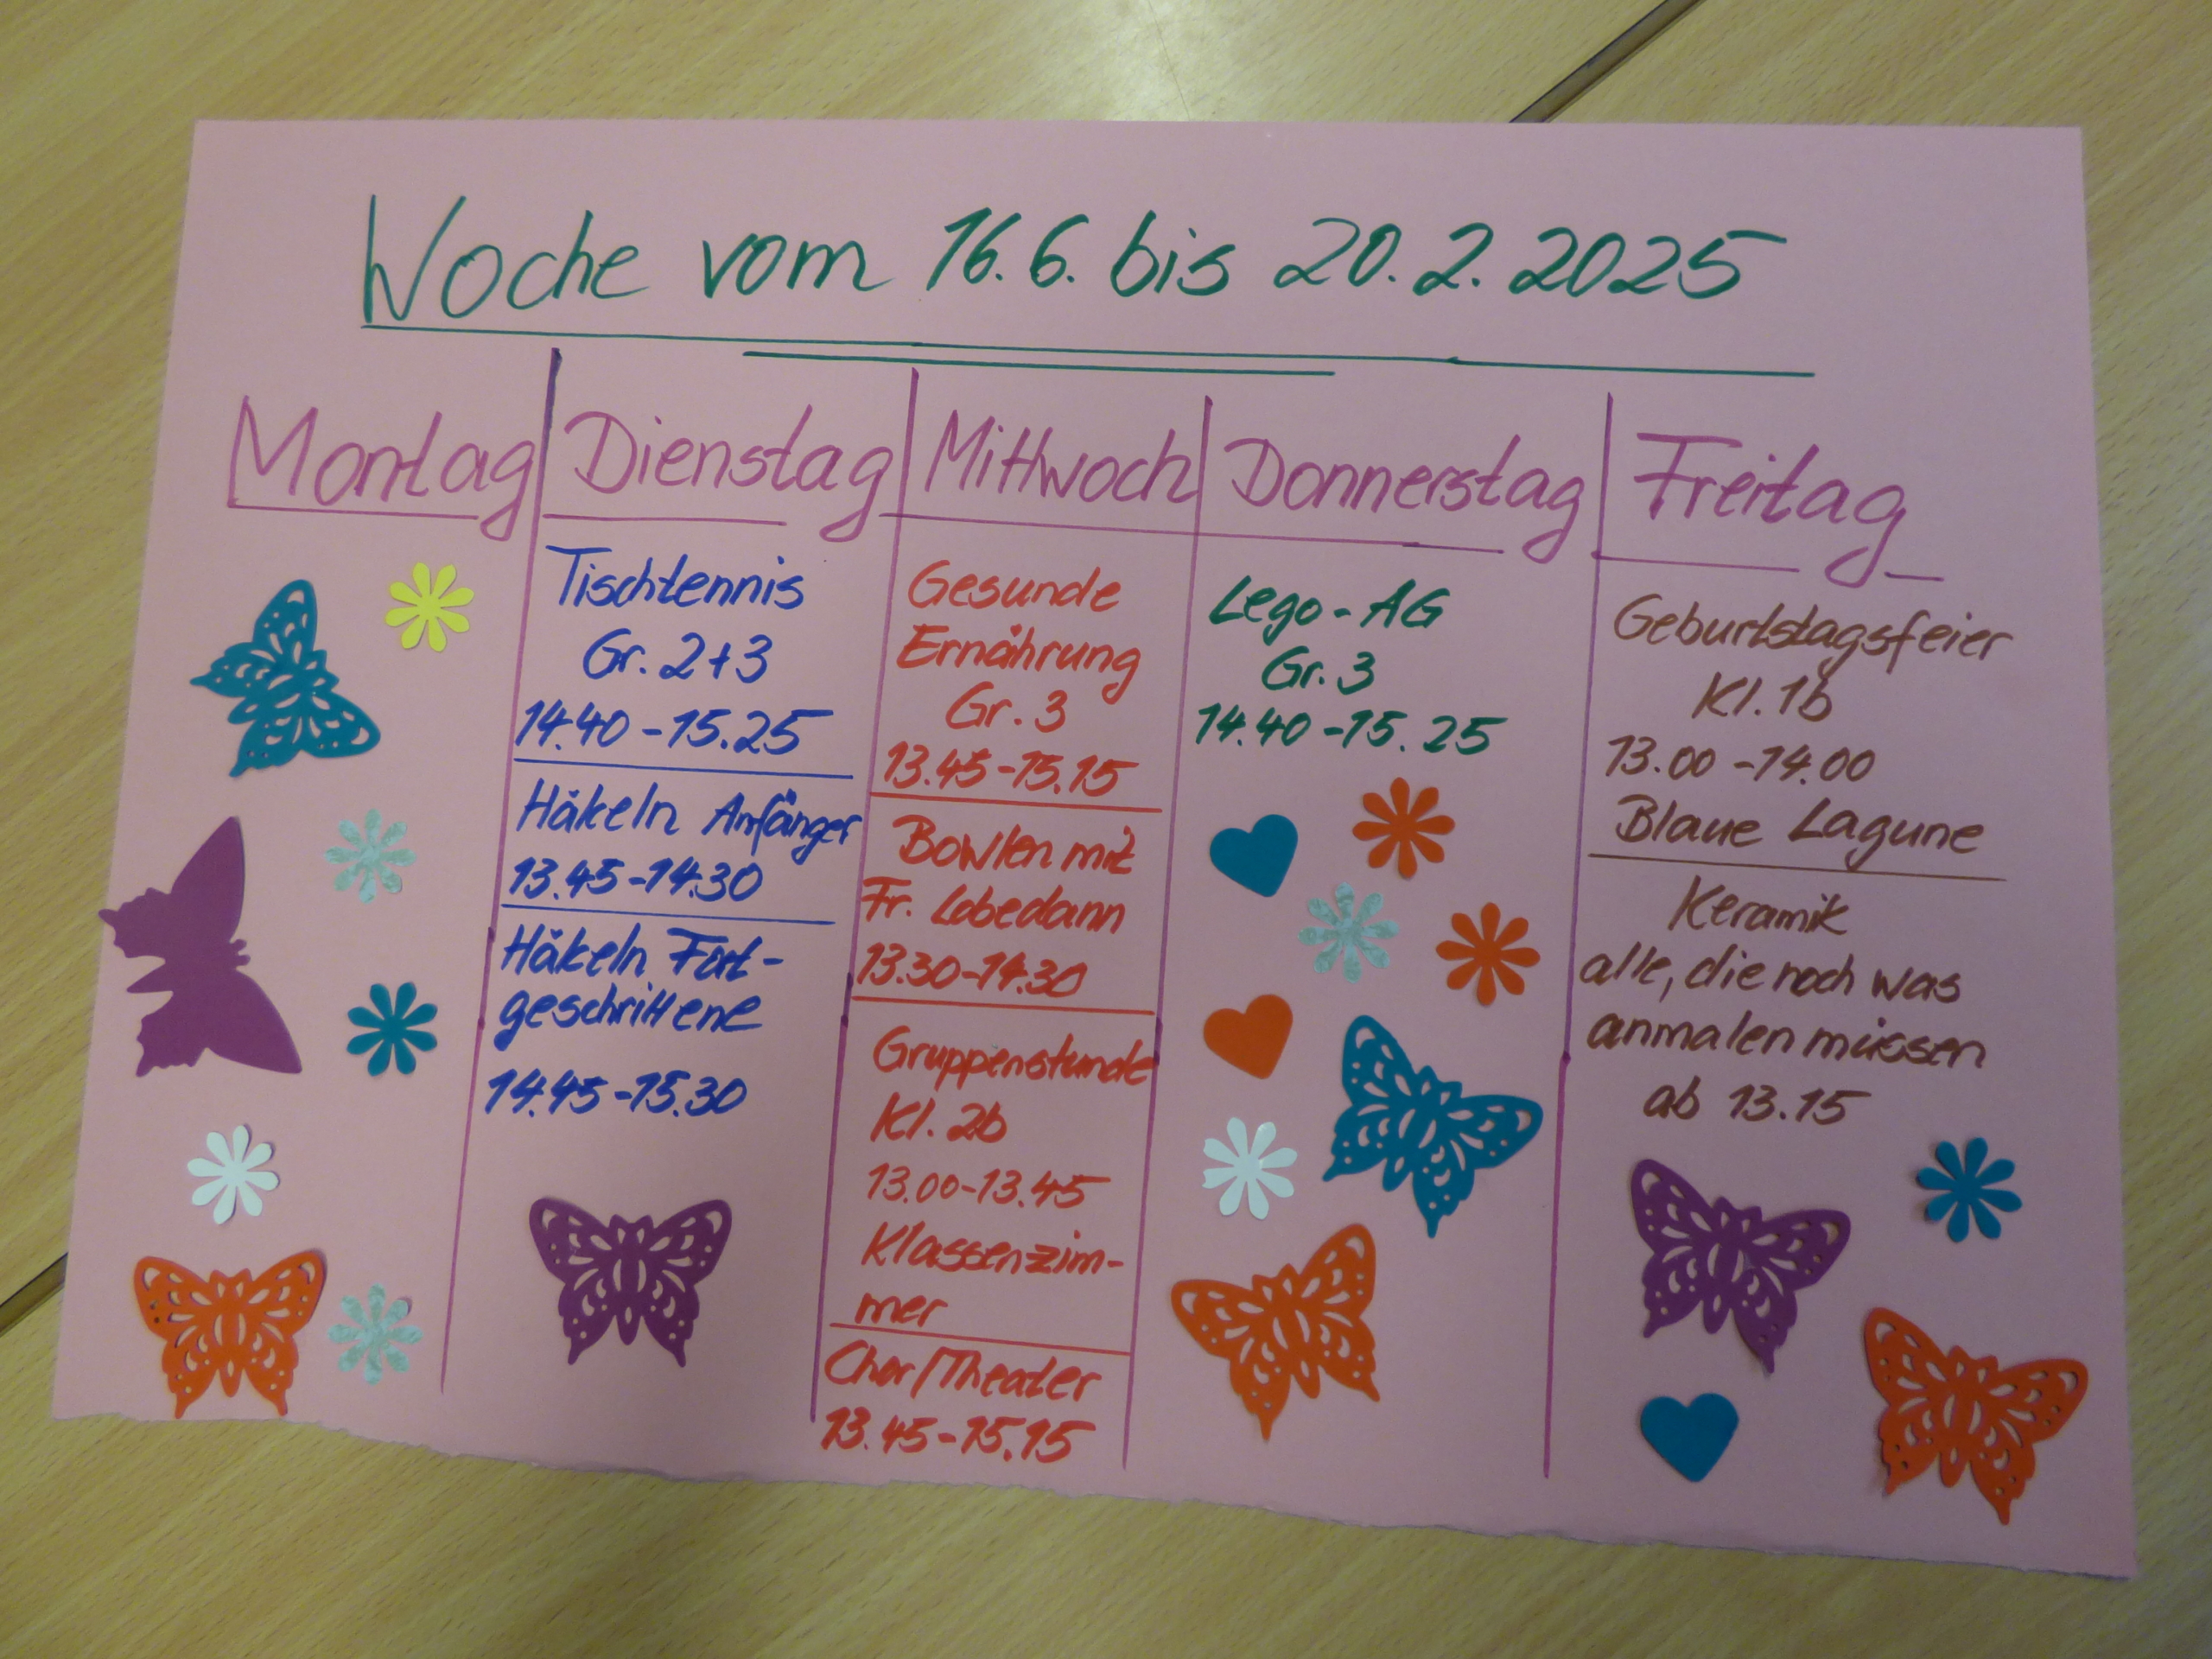 Woche vom 16.6. bis 20.2.2025
Montag
Dienstag
Tischtennis
Gr. 2+3
14.40 - 15.25
Häkeln Anfänger
13.45 - 14.30
Häkeln Fort-
geschrittene
14.45 - 15.30
Mittwoch
Gesunde
Ernährung
Gr. 3
13.45 - 15.15
Bowlen mit
Fr. Lobedann
13.30 - 14.30
Gruppenstunde
Kl. 2b
13.00 - 13.45
Klassenzim-
mer
Chor/Theater
13.45 - 15.15
Donnerstag
Lego - AG
Gr. 3
14.40 - 15.25
Freitag
Geburtstagsfeier
Kl. 1b
13.00 - 14.00
Blaue Lagune
Keramik
alle, die noch was
anmalen müssen
ab 13.15